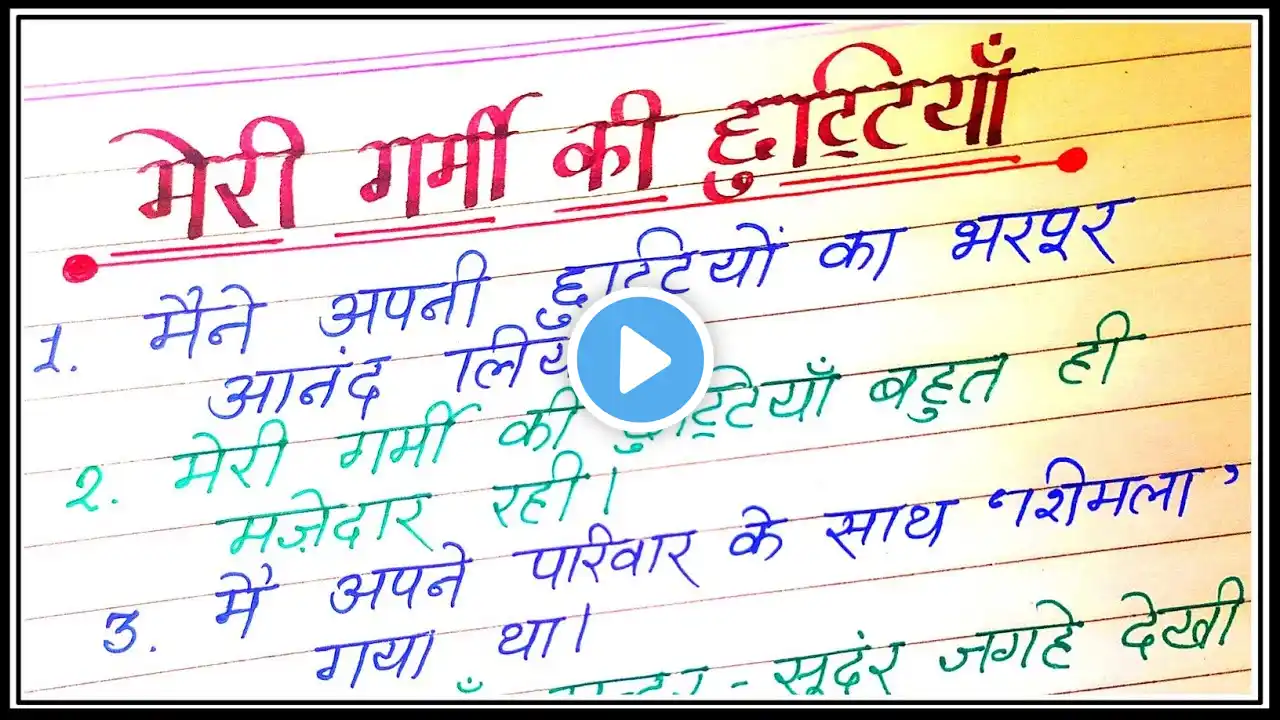 मेरी गर्मी की छुट्टियाँ
1. मैने अपनी छुट्टियों का भरपूर
आनंद
2. मेरी गर्मी की छुट्टियाँ बहुत ही
मज़ेदार रही।
3. मै अपने परिवार के साथ 'शिमला'
गया था।
सूदंर जगहे देखी